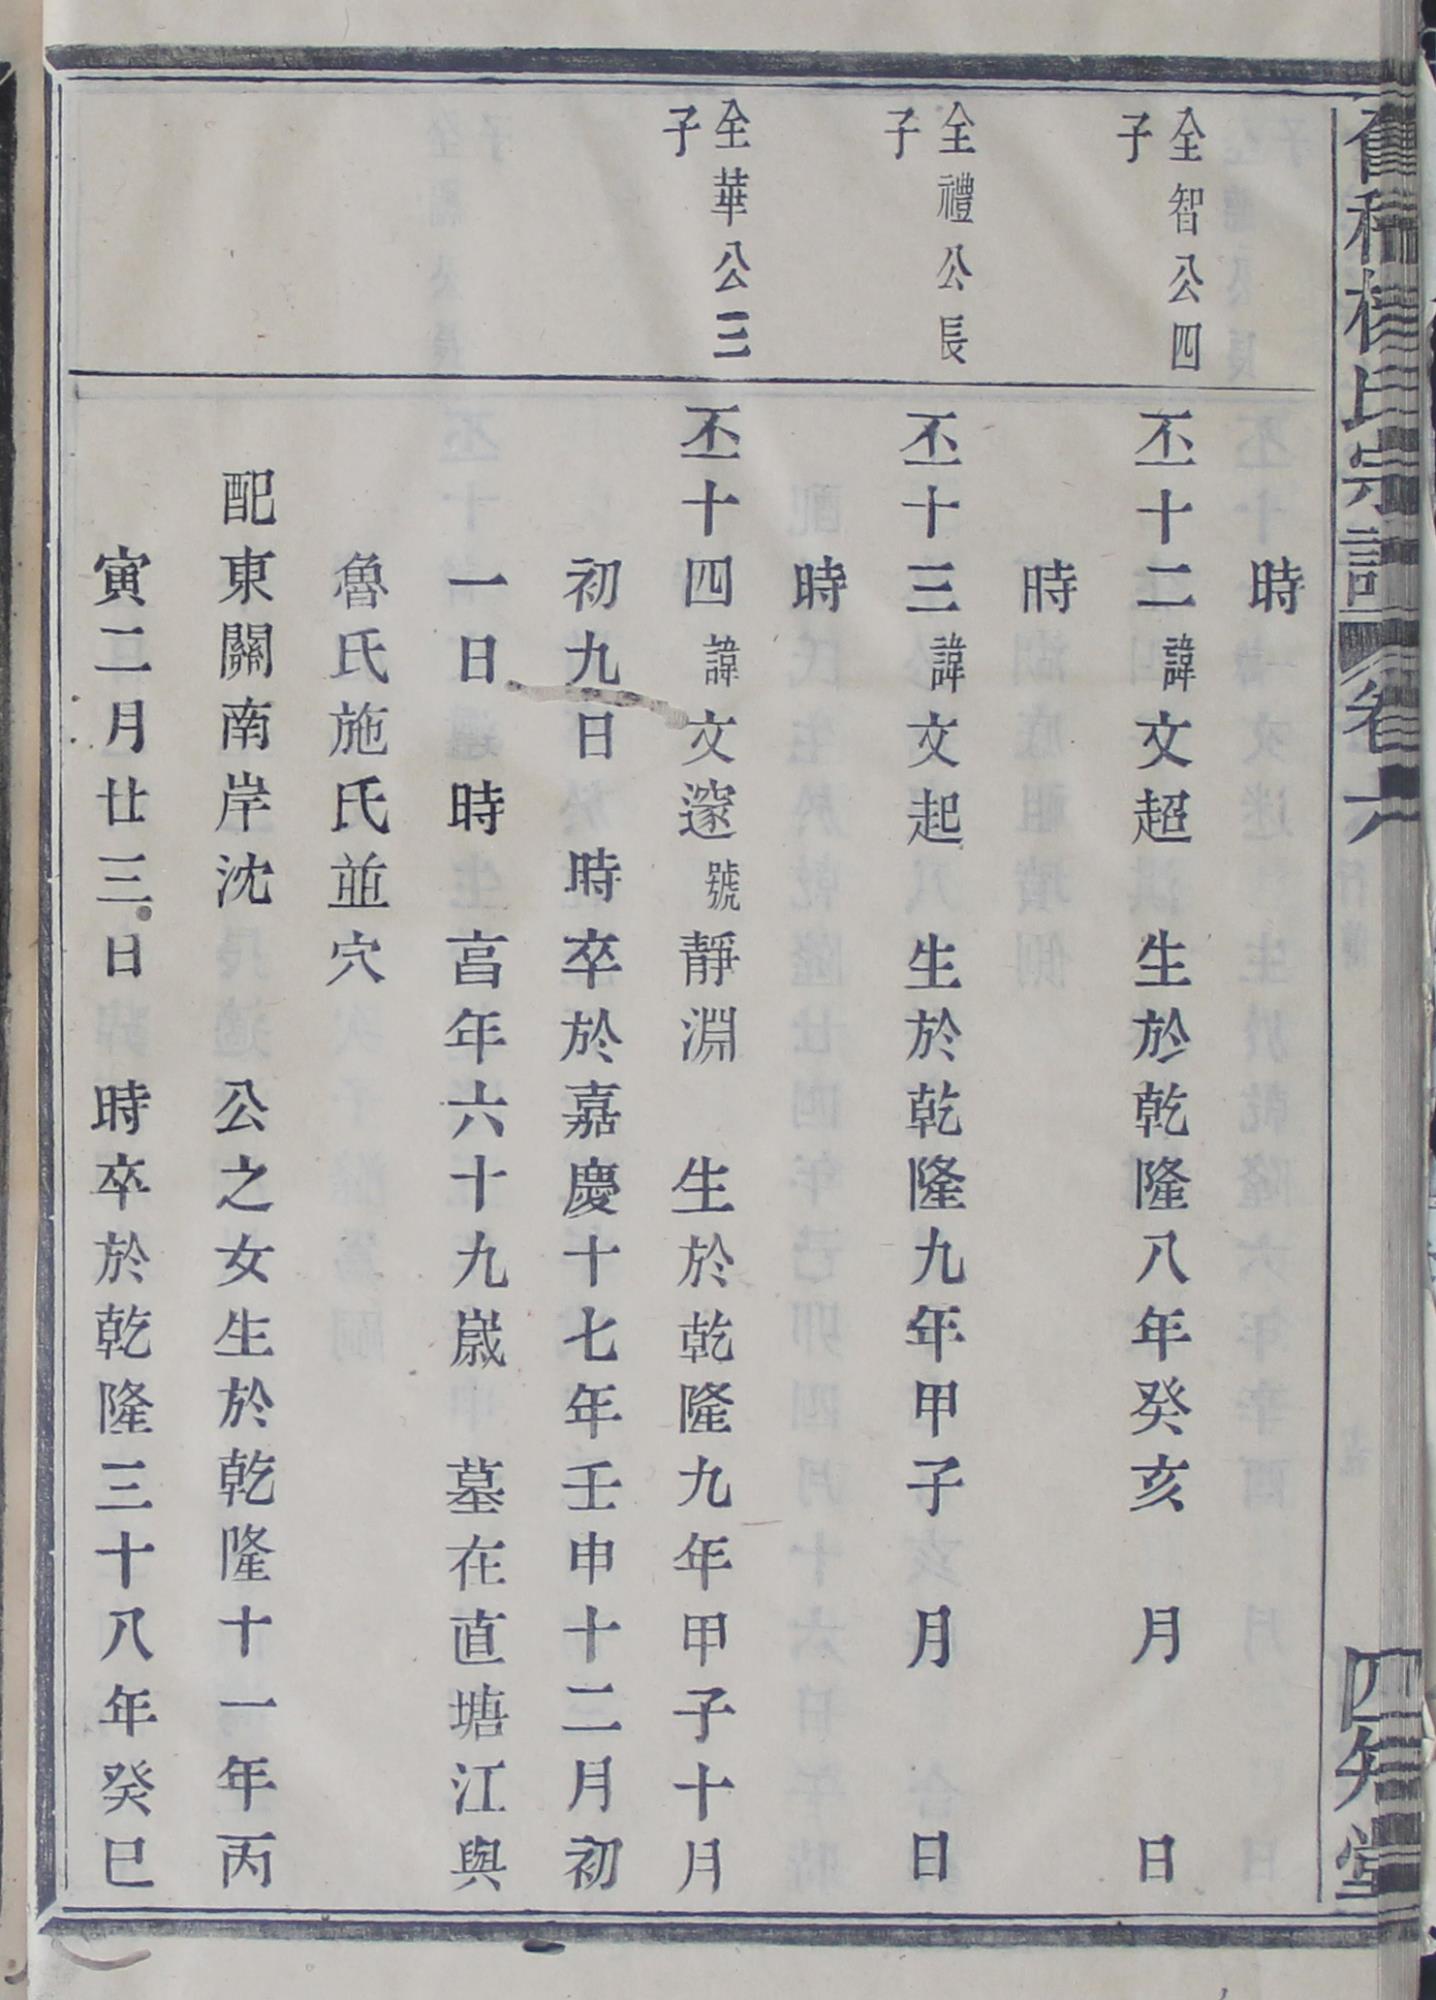 楊氏宗譜 卷六 四知堂
時
全智公四
子
丕十二諱文超 生於乾隆八年癸亥 月 日
時
全禮公長
子
丕十三諱文起 生於乾隆九年甲子 月 日
時
全華公三
子
丕十四諱文邃號靜淵 生於乾隆九年甲子十月
初九日 時卒於嘉慶十七年壬申十二月初
一日 時亯年六十九嵗 墓在直塘江與
魯氏施氏並穴
配東關南岸沈 公之女生於乾隆十一年丙
寅二月廿三日 時卒於乾隆三十八年癸巳